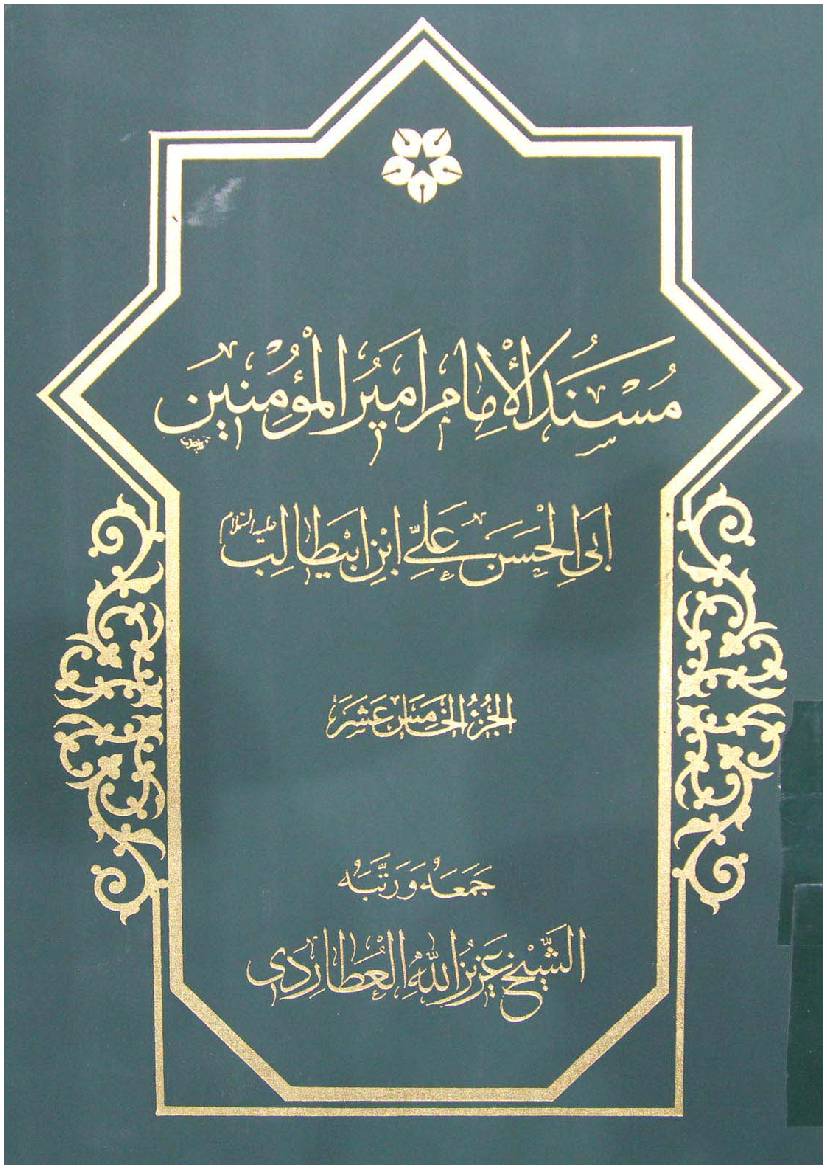 مُسْنَدُ الْإِمَامِ اَمِيرُ الْمُؤْمِنِينَ
اَبِي الْحَسَنِ عَلِيِّ ابْنِ ابيطَالِبْ عليه السلام
الجُزْءُ الْخَامِسُ عَشَرَ
جَمَعَهُ وَ رَتَّبَهُ
الشَّيْخُ عَزِيزُ اللّٰهِ الْعُطَارِدِي